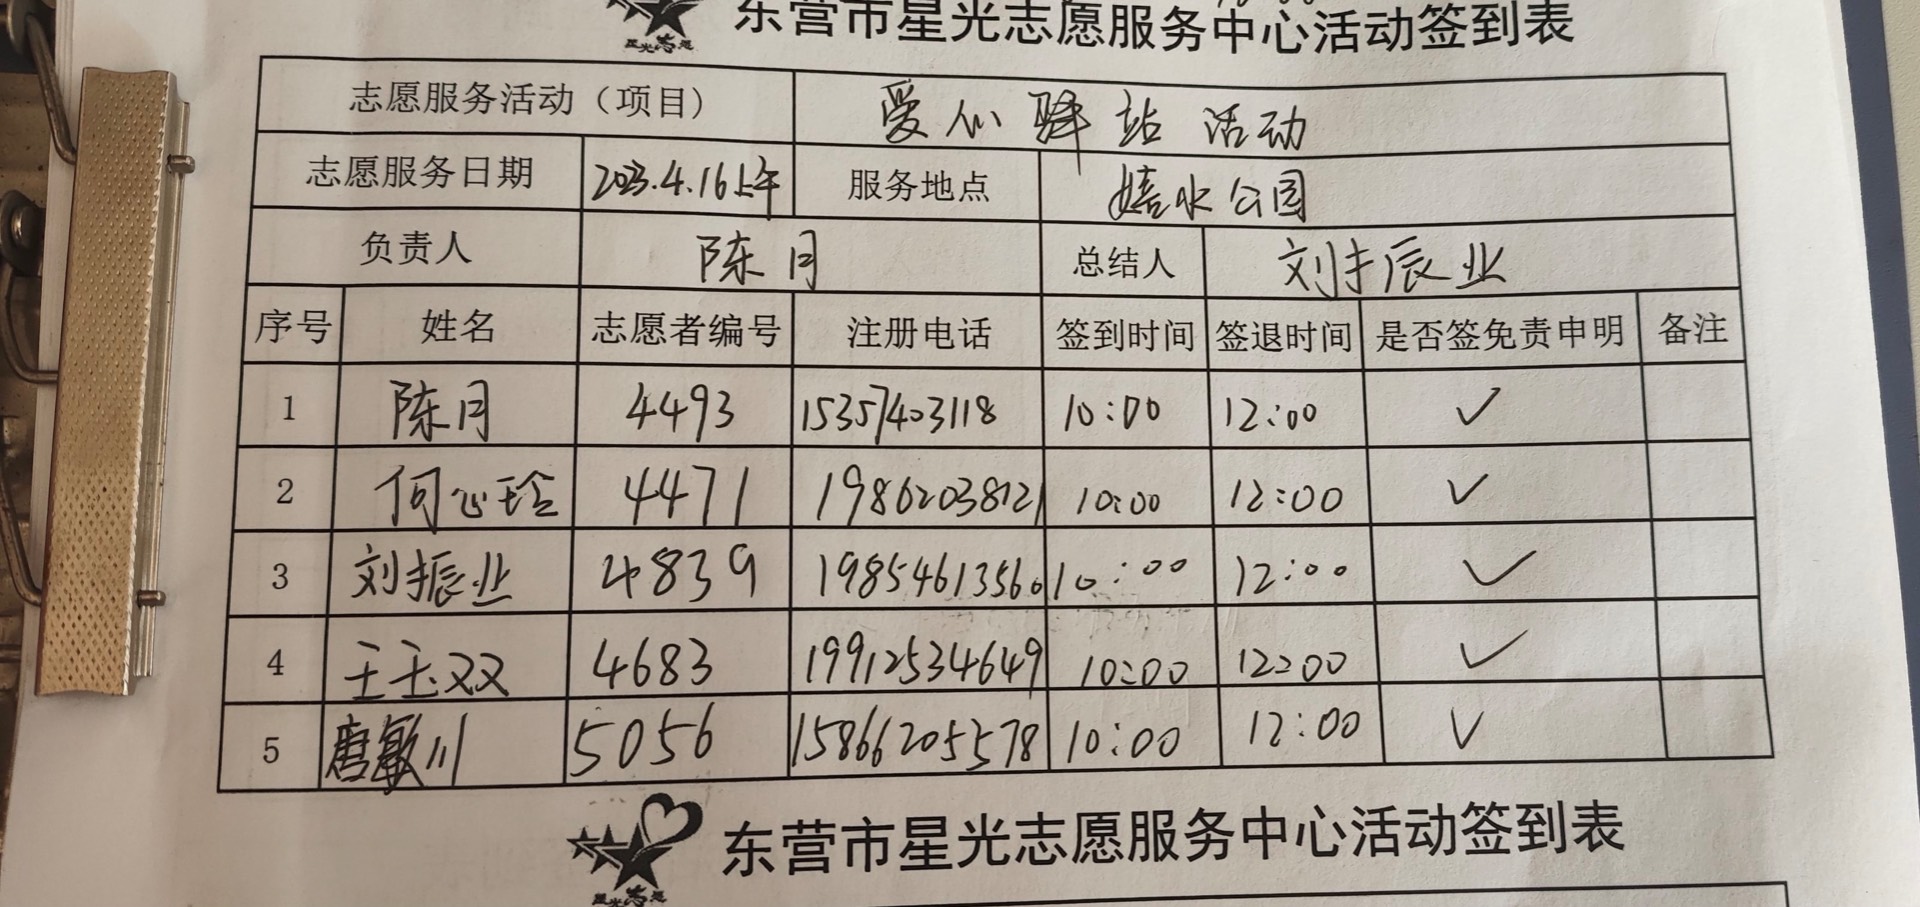 东营市星光志愿服务中心活动签到表
星光志愿
志愿服务活动（项目） 爱心驿站活动
志愿服务日期 2023.4.16上午 服务地点 嬉水公园
负责人 陈月 总结人 刘振业
序号 姓名 志愿者编号 注册电话 签到时间 签退时间 是否签免责申明 备注
1 陈月 4493 15357403118 10:00 12:00 ✓
2 何心玲 4471 19862038121 10:00 12:00 ✓
3 刘振业 4839 19854613560 10:00 12:00 ✓
4 王玉双 4683 19912534649 10:00 12:00 ✓
5 唐敏川 5056 15866205578 10:00 12:00 ✓
东营市星光志愿服务中心活动签到表
星光志愿